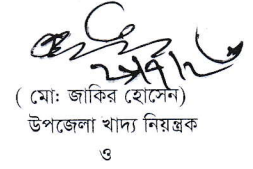 ( মো: জাকির হোসেন)
উপজেলা খাদ্য নিয়ন্ত্রক
ও